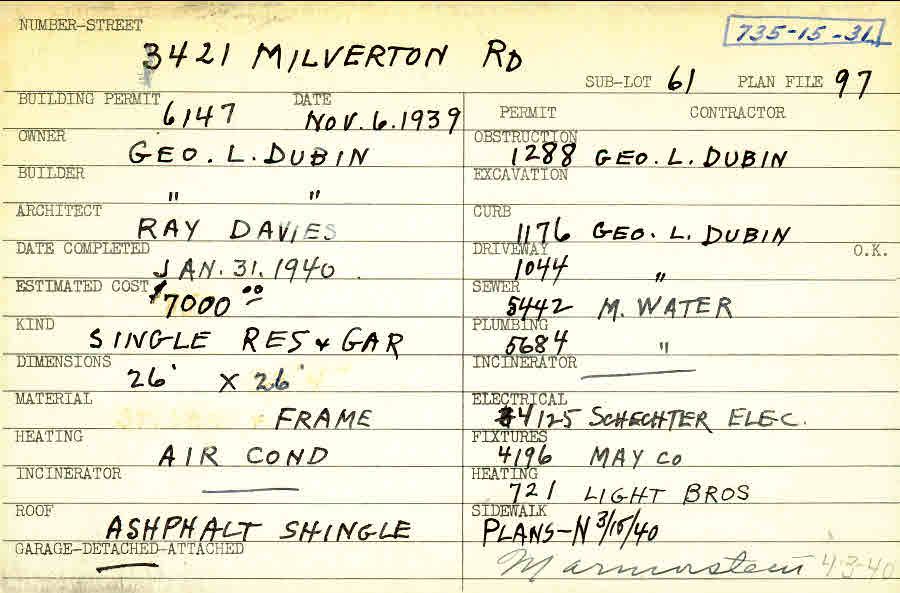 NUMBER-STREET
3421 MILVERTON RD
735-15-31
SUB-LOT 61 PLAN FILE 97
BUILDING PERMIT 6147 DATE NOV. 6. 1939
OWNER GEO. L. DUBIN
BUILDER " "
ARCHITECT RAY DAVIES
DATE COMPLETED JAN. 31. 1940
ESTIMATED COST $7000 00
KIND SINGLE RES & GAR
DIMENSIONS 26' X 26'
MATERIAL FRAME
HEATING AIR COND
INCINERATOR
ROOF ASHPHALT SHINGLE
GARAGE-DETACHED-ATTACHED
PERMIT CONTRACTOR
OBSTRUCTION 1288 GEO. L. DUBIN
EXCAVATION
CURB 1176 GEO. L. DUBIN
DRIVEWAY 1044 " O.K.
SEWER 5442 M. WATER
PLUMBING 5684 "
INCINERATOR
ELECTRICAL 4125 SCHECHTER ELEC.
FIXTURES 4196 MAY CO
HEATING 721 LIGHT BROS
SIDEWALK
PLANS-N 3/15/40
Marmorstein 4-3-40